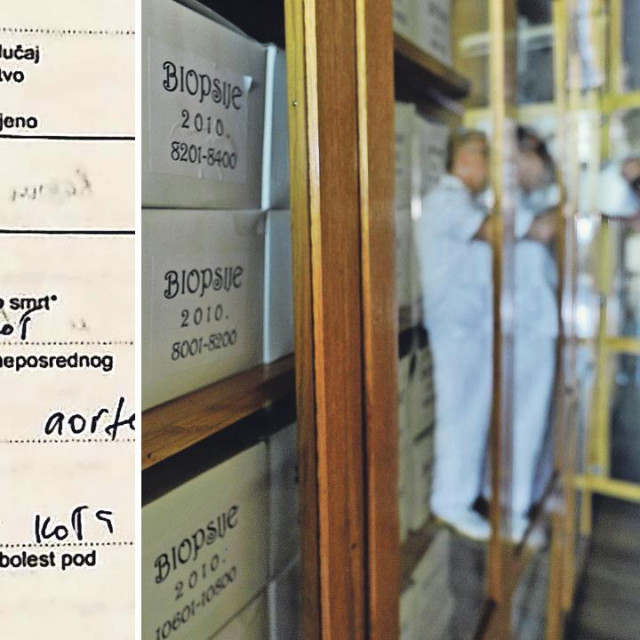 lučaj
tvo
jeno
o smrt*
neposrednog
aorte
bolest pod
BIOPSIJE
2010.
8201-8400
BIOPSIJE
2010.
8001-8200
BIOPSIJE
2010.
10601-10800